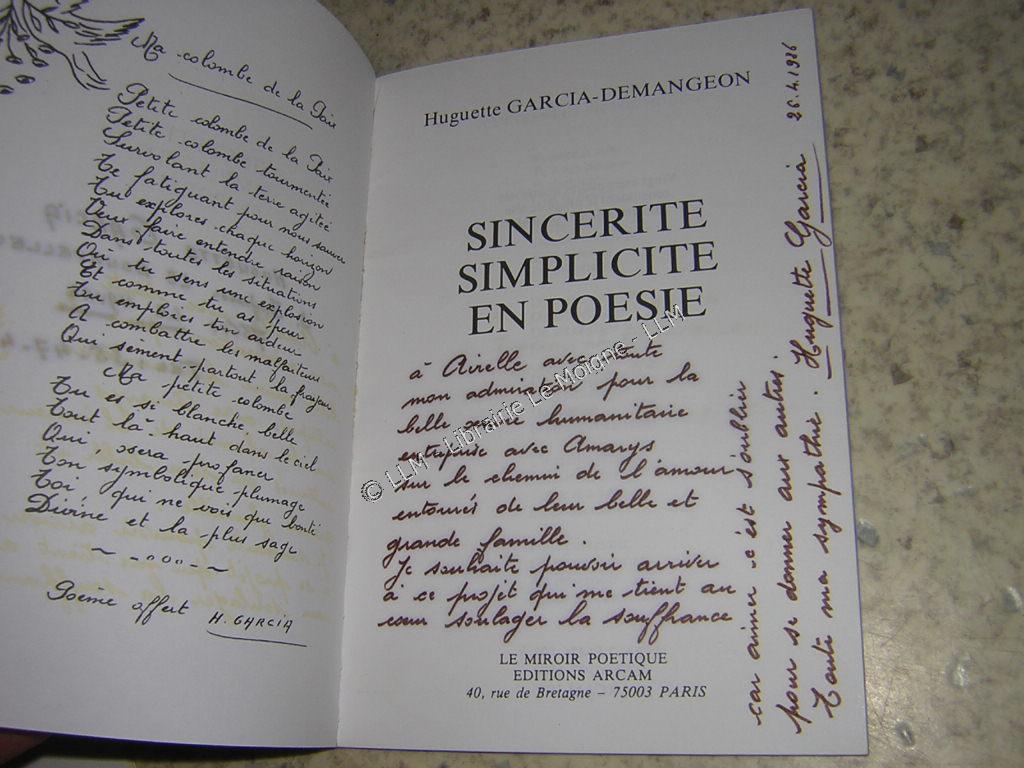 Ma colombe de la Paix
Petite colombe de la Paix
Petite colombe tourmentée
Survolant la terre agitée
Te fatiguant pour nous sauver
Tu explores chaque horizon
Veux faire entendre raison
Dans toutes les situations
Où tu sens une explosion
Et comme tu as peur
Tu emploies ton ardeur
A combattre les malfaiteurs
Qui sèment partout la frayeur
Ma petite colombe
Tu es si blanche, belle
Tout là-haut dans le ciel
Qui osera profaner
Ton symbolique plumage
Toi qui ne vois que bonté
Divine et la plus sage
Poème offert H. GARCIA
Huguette GARCIA-DEMANGEON
SINCERITE
SIMPLICITE
EN POESIE
à Airelle avec toute
mon admiration pour la
belle œuvre humanitaire
entreprise avec Amarys
sur le chemin de l'amour
entourés de leur belle et
grande famille.
Je souhaite pouvoir arriver
à ce projet qui me tient au
cœur soulager la souffrance
car aimer c'est s'oublier
pour se donner aux autres.
Toute ma sympathie. Huguette Garcia 26.4.1986
LE MIROIR POETIQUE
EDITIONS ARCAM
40, rue de Bretagne – 75003 PARIS
© LLM - Librairie Le Moigne - LLM